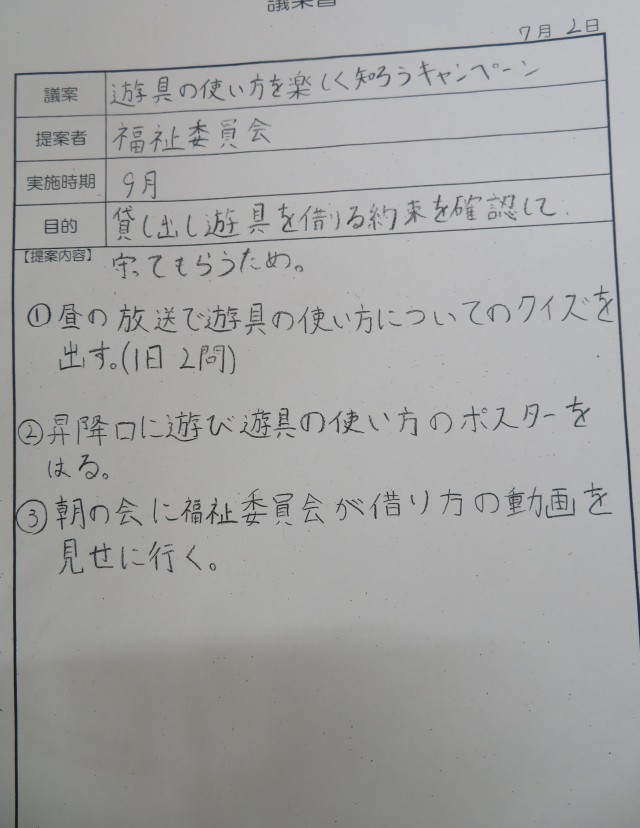 議案書
7月2日
議案 遊具の使い方を楽しく知ろうキャンペーン
提案者 福祉委員会
実施時期 9月
目的 貸し出し遊具を借りる約束を確認して、
【提案内容】 守ってもらうため。
①昼の放送で遊具の使い方についてのクイズを
出す。(1日2問)
②昇降口に遊び遊具の使い方のポスターを
はる。
③朝の会に福祉委員会が借り方の動画を
見せに行く。